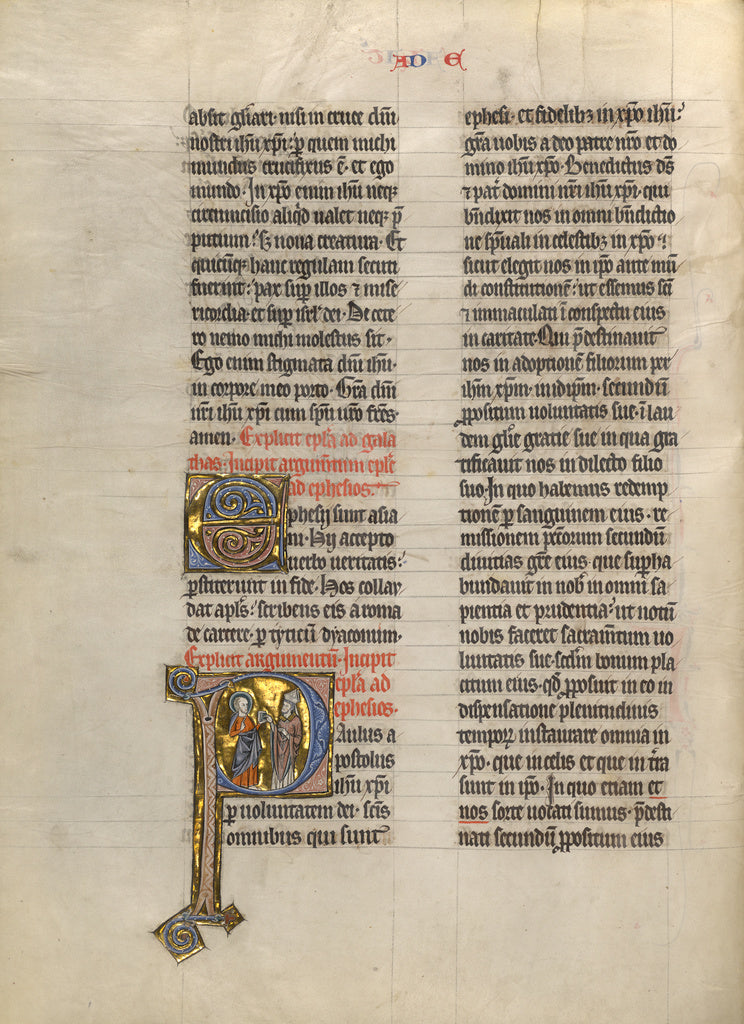 AD E
absit gl̅iari· nisi in cruce dn̅i
nostri ihu̅ xp̅i· p̱ quem michi
mundus crucifixus e̅· et ego
mundo· In xp̅o enim ihu̅ neqꝫ
circumcisio aliqͥd ualet neqꝫ p̅
putium· sꝫ noua creatura· Et
quicu̅qꝫ hanc regulam secuti
fuerint· pax sup̱ illos ⁊ mise
ricordia· et sup̱ isrl̅ dei· De cete
ro nemo michi molestus sit·
Ego enim stigmata dn̅i ihu̅·
in corpore meo porto· Gr̅a dn̅i
nr̅i ihu̅ xp̅i cum sp̅u ur̅o fr̅es·
amen· Explicit epl̅a ad gala
thas· Incipit argum̅tum epl̅e
ad ephesios·
Ephesij sunt asia
ni· Hij accepto
uerbo ueritatis·
p̱stiterunt in fide· Hos collau
dat apl̅s· scribens eis a roma
de carcere· p̱ tyticu̅ dyaconum·
Explicit argumentu̅· Incipit
epl̅a ad
ephesios·
Paulus a
postolus
ihu̅ xp̅i
p̱ uoluntatem dei· sc̅is
omnibus qui sunt
ephesi· et fidelibꝫ in xp̅o ihu̅·
gr̅a uobis a deo patre nr̅o et do
mino ihu̅ xp̅o· Benedictus ds̅
⁊ pat̉ domini nr̅i ihu̅ xp̅i· qui
bn̅dixit nos in omni bn̅dictio
ne sp̅uali in celestibꝫ in xp̅o·
sicut elegit nos in ip̅o ante mu̅
di constitutione̅· ut essemus sc̅i
⁊ immaculati i̅ conspectu eius
in caritate· Qui p̅destinauit
nos in adoptione̅ filiorum per
ihm̅ xp̅m· in idip̅m· secundu̅
ꝓpositum uoluntatis sue· i̅ lau
dem gl̅ie gratie sue in qua gra
tificauit nos in dilecto filio
suo· In quo habemus redemp
tione̅ p̱ sanguinem eius· re
missionem pc̅torum secundu̅
diuitias gr̅e eius· que sup̱ha
bundauit in nob̅ in omni sa
pientia et prudentia· ut notu̅
nobis faceret sacram̅tum uo
luntatis sue· scd̅m bonum pla
citum eius· qd̅ ꝓposuit in eo in
dispensatione plenitudinis
temporꝝ instaurare omnia in
xp̅o· que in celis et que in t̉ra
sunt in ip̅o· In quo etiam et
nos sorte uocati sumus· p̅desti
nati secundu̅ ꝓpositum eius